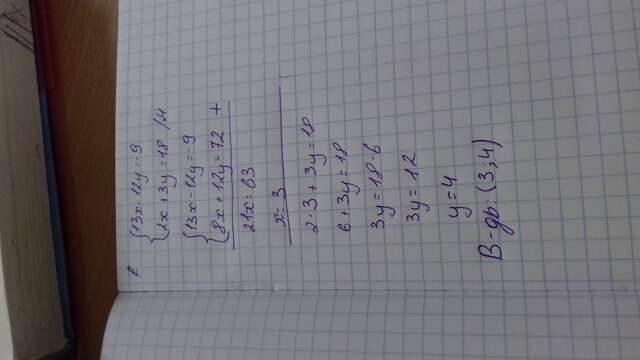 {13x-12y=-9
{2x+3y=18 /·4
{13x-12y=-9
{8x+12y=72 +
21x=63
x=3
2·3+3y=18
6+3y=18
3y=18-6
3y=12
y=4
В-дь: (3,4)